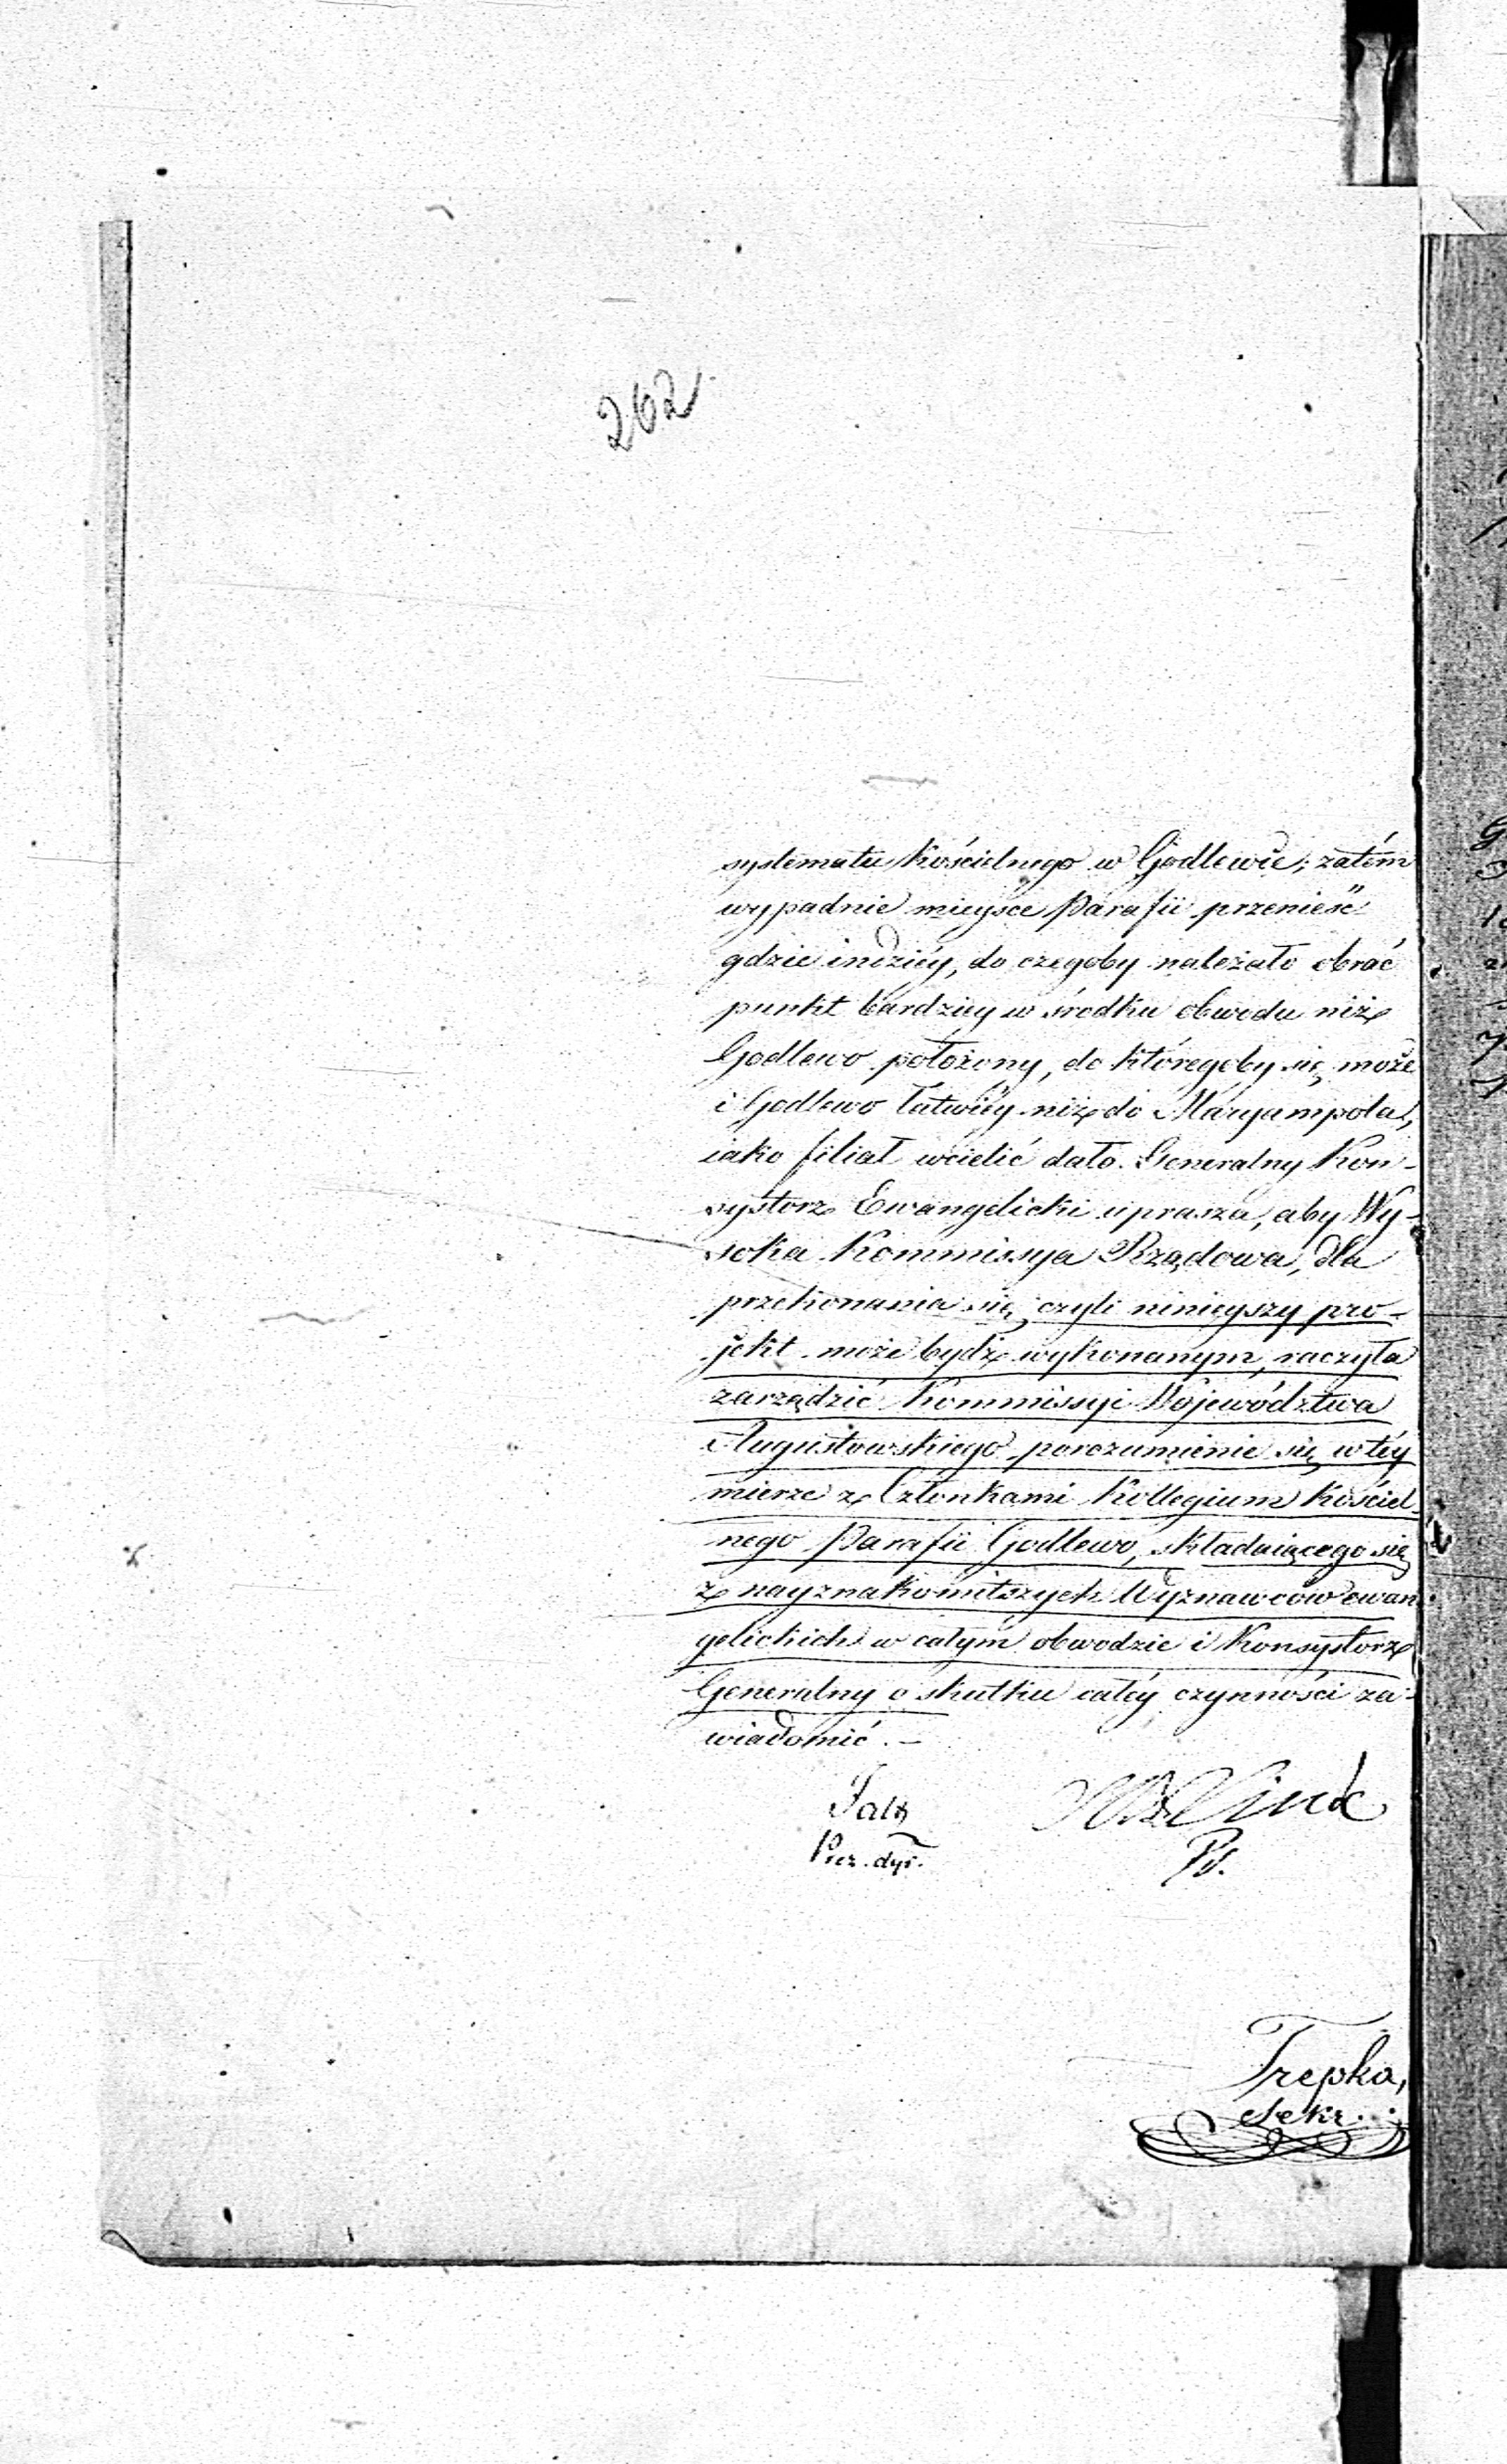 262
systematu Kościelnego w Godlewie; zatém
wypadnie mieysce Parafii przenieść
gdzie indzićy, do czegoby należało obrać
punkt bardziey w środku obwodu niż
Godlewo położony, do któregoby się może
i Godlewo łatwićy niż do Maryampola,
iako filiał wcielić dało. Generalny Kon-
systorz Ewangelicki uprasza, aby Wy-
soka Kommissya Rządowa, dla
przekonania się, czyli ninieyszy pro-
jekt może bydź wykonanym, raczyła
zarządzić Kommissyi Województwa
Augustowskiego porozumienie się w téy
mierze z Członkami Kollegium Kościel-
nego Parafii Godlewo, składaiącego się
z nayznakomitszych Wyznawców ewan-
gelickich w całym obwodzie i Konsystorz
Generalny o skutku całéy czynności za-
wiadomić. —
Prez. dyr.
Trepka,
Sekr.